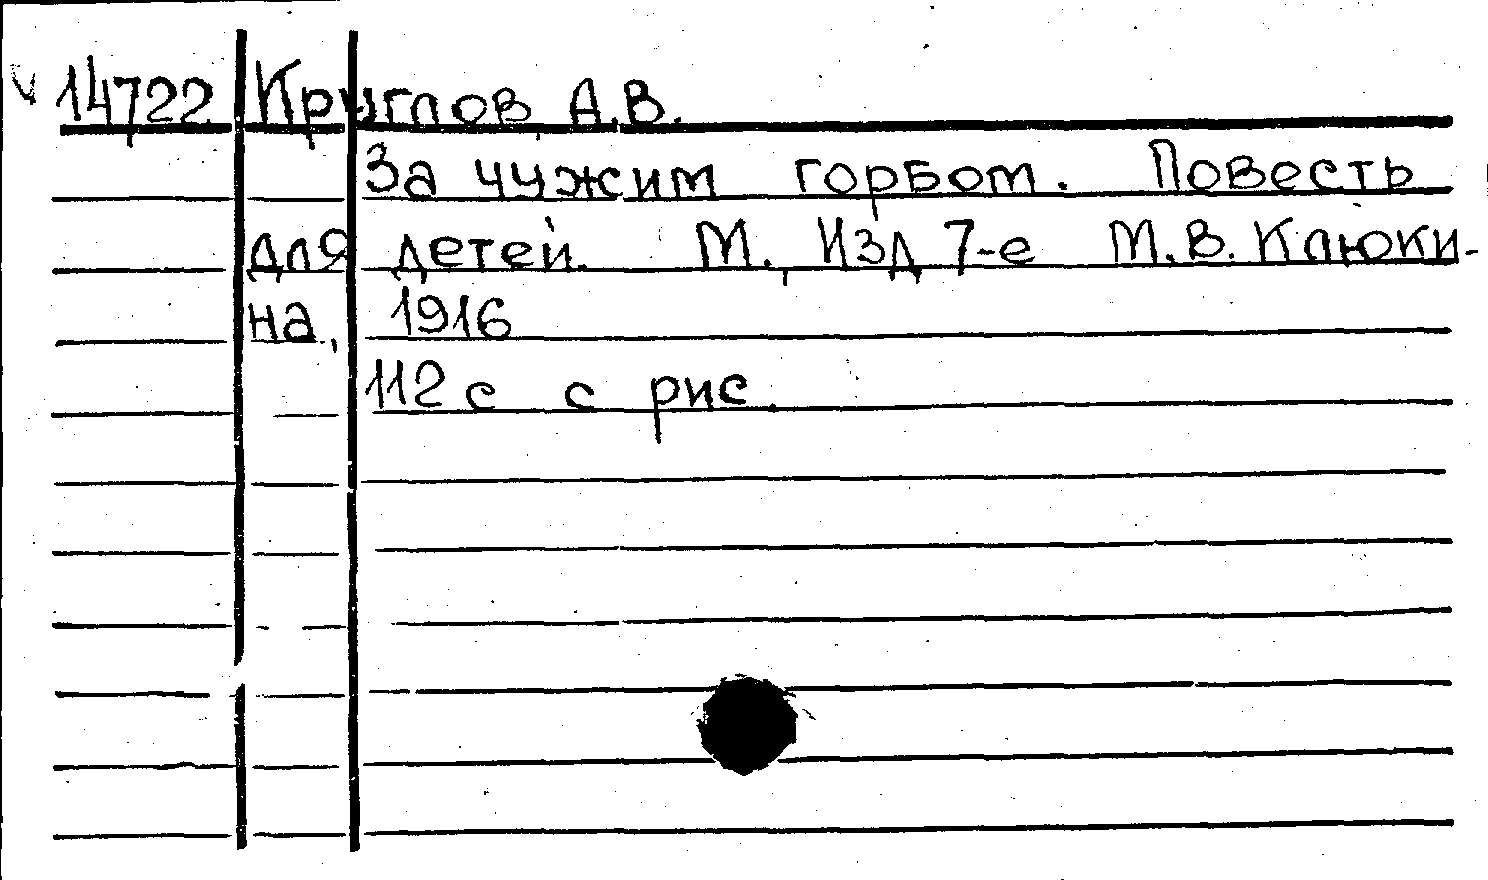 14722 Круглов А.В.
За чужим горбом. Повесть
для детей. М., Изд 7-е М.В. Клюки-
на, 1916
112 с с рис.